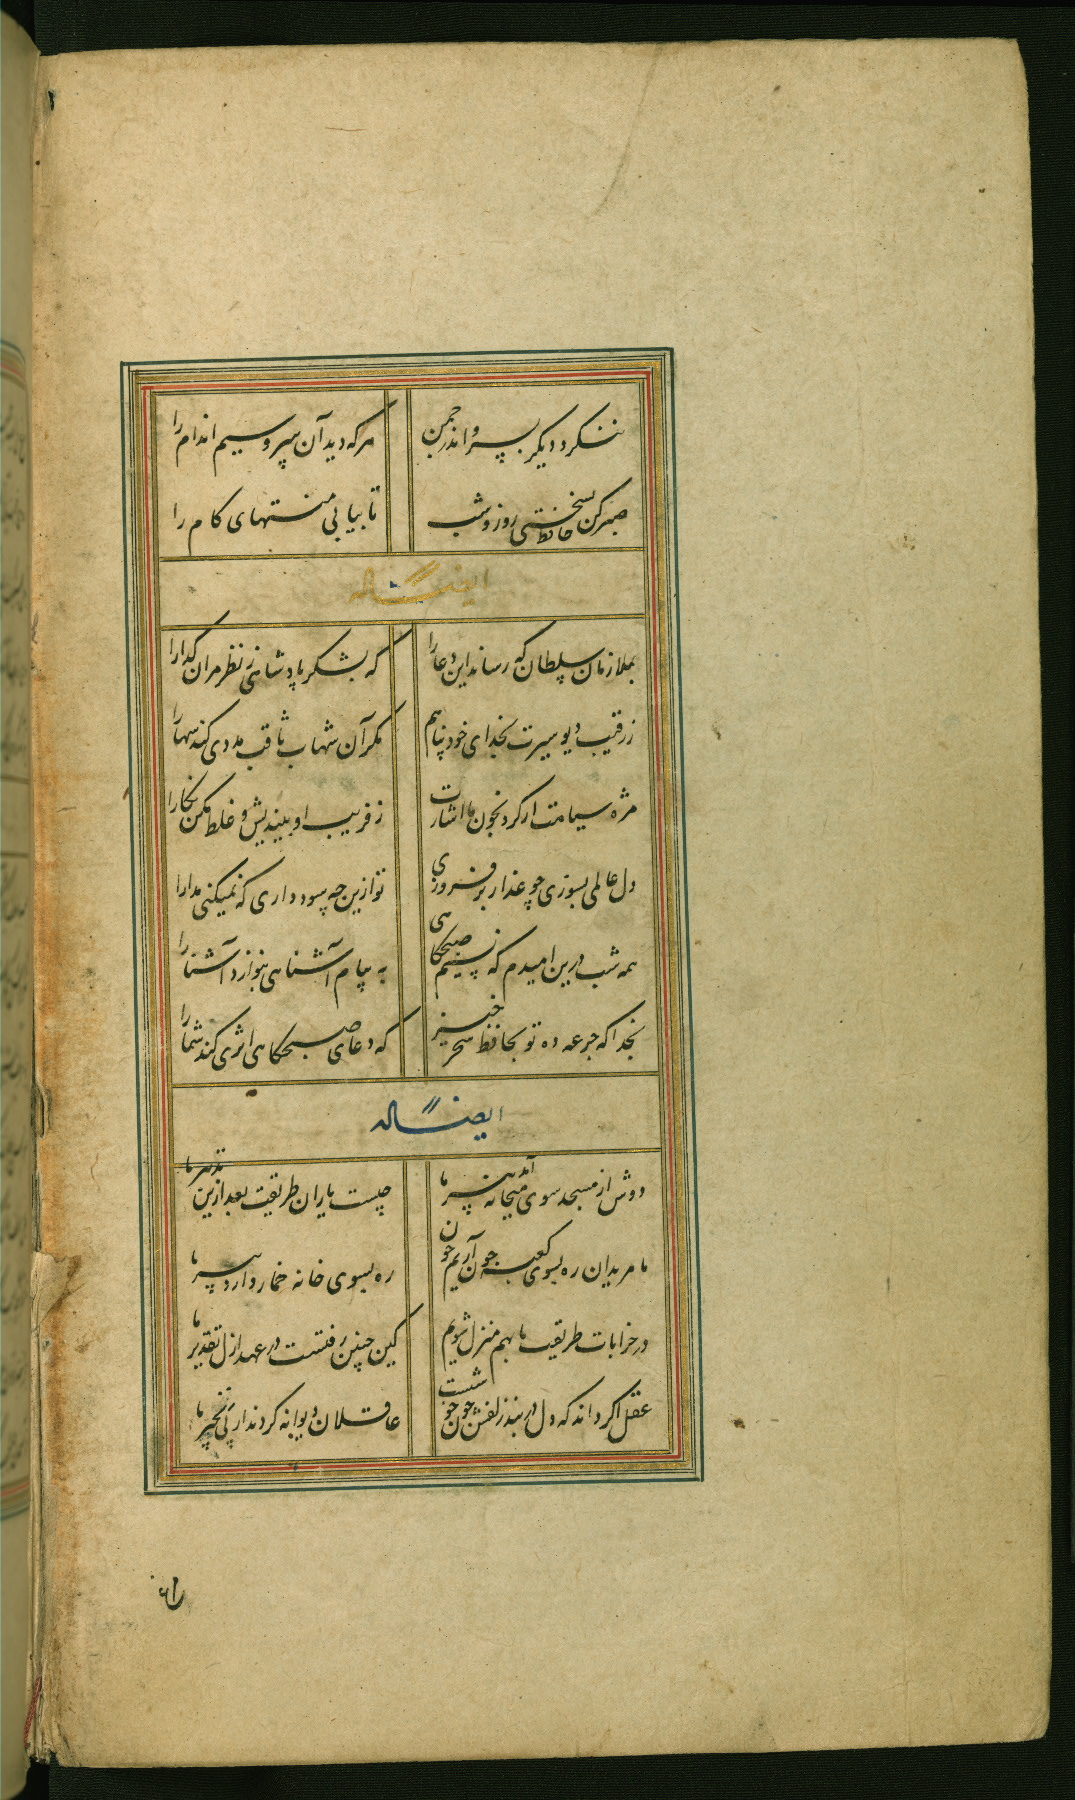 ننگرد دیگر بسرو اندر چمن
هرکه دید آن سرو سیم اندام را
صبر کن حافظ بسختی روز و شب
تا بیابی منتهای کام را
ایضاً له
بملازمان سلطان که رساند این دعا را
که بشکر پادشاهی ز نظر مران گدا را
ز رقیب دیو سیرت بخدای خود پناهم
مگر آن شهاب ثاقب مددی کند سها را
مژه سیاهت ار کرد بخون ما اشارت
ز فریب او بیندیش و غلط مکن نگارا
دل عالمی بسوزی چو عذار برفروزی
تو ازین چه سود داری که نمیکنی مدارا
همه شب درین امیدم که نسیم صبحگاهی
به پیام آشناهی بنوازد آشنا را
بخدا که جرعه ده تو بحافظ سحر خیز
که دعای صبحگاهی اثری کند شما را
ایضاً له
دوش از مسجد سوی میخانه آمد پیر ما
چیست یاران طریقت بعد ازین تدبیر ما
ما مریدان ره بسوی کعبه چون آریم چون
ره بسوی خانه خمار دارد پیر ما
در خرابات طریقت ما بهم منزل شویم
کین چنین رفتست در عهد ازل تقدیر ما
عقل اگر داند که دل در بند زلفش چون خوشست
عاقلان دیوانه گردند از پی زنجیر ما